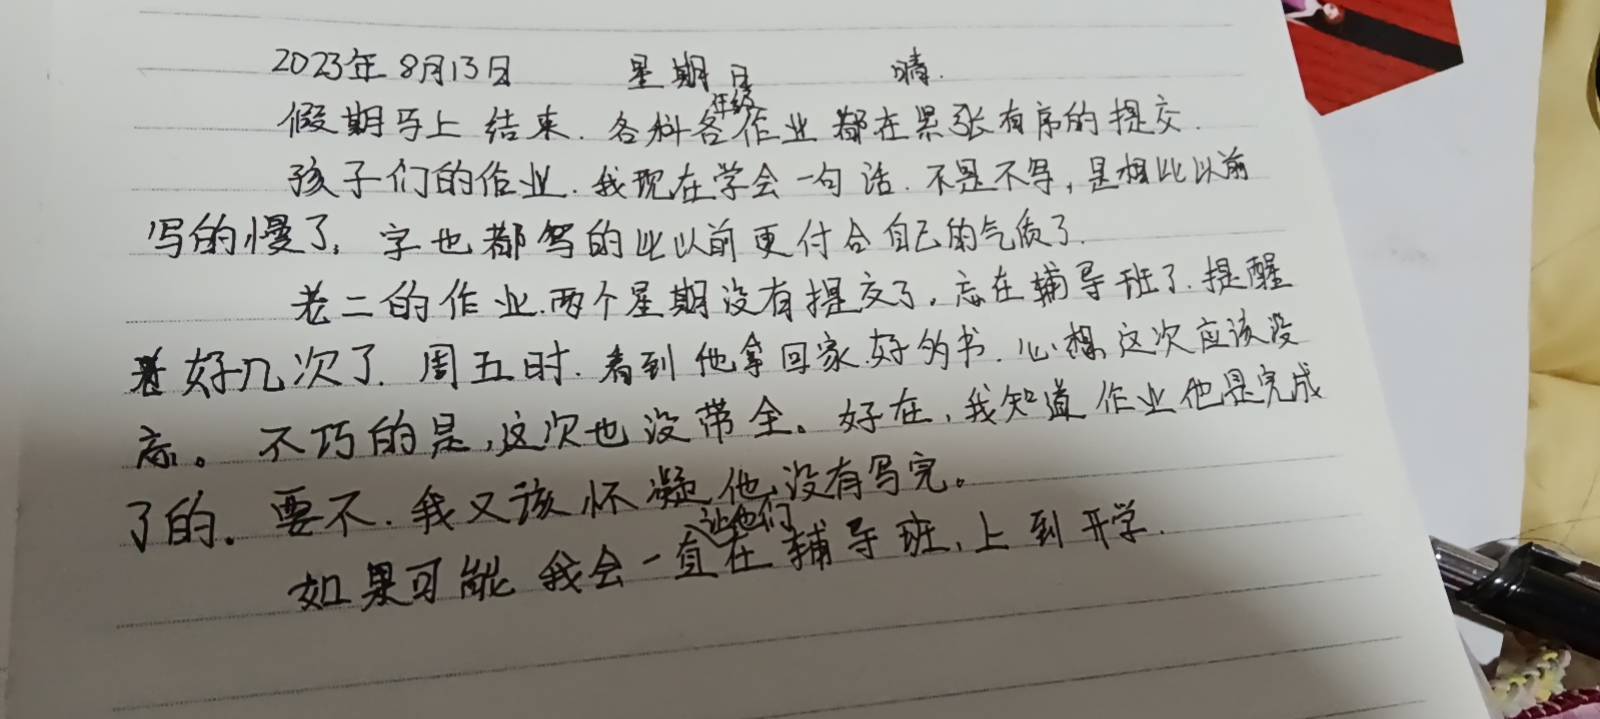 2023年8月13日 星期日 晴.
假期马上结束.各科各年级作业都在紧张有序的提交.
孩子们的作业.我现在学会一句话.不是不写,是相比以前
写的慢了,字也都写的比以前更付合自己的气质了.
老二的作业.两个星期没有提交了,忘在辅导班了.提醒
好几次了.周五时.看到他拿回家.好多书.心想这次应该没
忘。不巧的是,这次也没带全。好在,我知道作业他是完成
了的.要不.我又该怀凝他没有写完。
如果可能我会一直让他们在辅导班,上到开学.